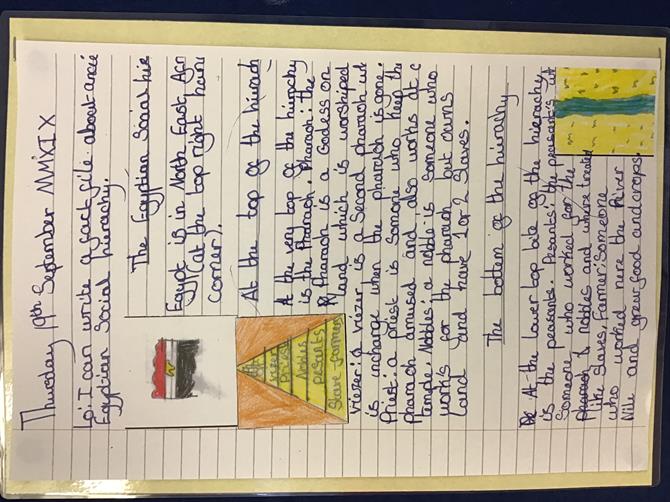 Thursday 19th September MMXIX
lo: I can write a fact file about
Egyptian Social hierachy.
The Egyptian Social
Egypt is in North East
(at the top right
corner).
At the top of the
At the very top of the hierachy
is the Pharaoh. Pharaoh: the
Pharaoh is a Godess on
land which is worshiped
viezer: a viezer is a Second pharaoh
is incharge when the pharaoh is gone.
Priest: a priest is someone who keep the
pharaoh amused and also works at
temple. Nobles: a noble is someone who
work's for the pharaoh but owns
land and have 1 or 2 Slaves.
viezer
Priest
Nobles
pesants
Slave farmers
The bottom of the hierachy
At the lower top bite of the hierachy
is the peasants. Pesants: the peasants
Someone who worked for the
Pharaoh & nobles and where treated
like Slaves. Farmer: Someone
who worked nere the River
Nile and grew food and crops